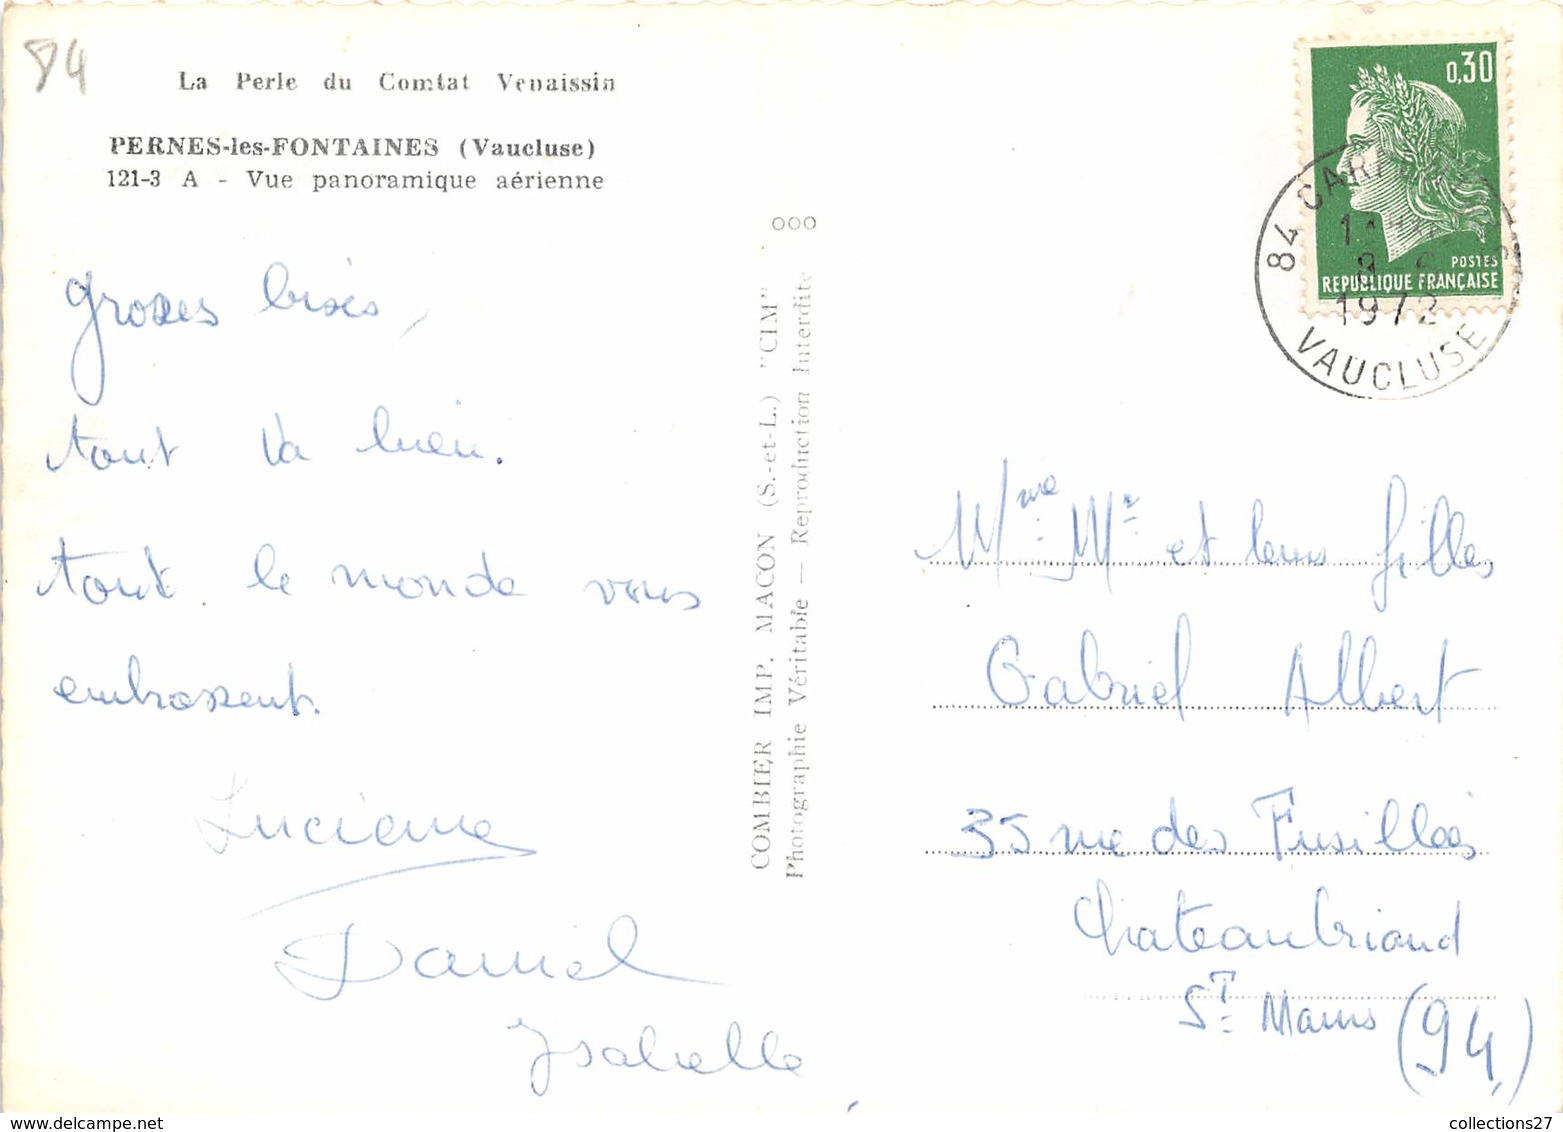 84
La Perle du Comtat Venaissin
PERNES-les-FONTAINES (Vaucluse)
121-3 A - Vue panoramique aérienne
Grosses bises,
tout va bien.
tout le monde vous
embrassent.
Lucienne
Daniel
Isabelle
COMBIER IMP. MACON (S.-et-L.) "CIM"
Photographie Véritable — Reproduction Interdite
0,30
POSTES
REPUBLIQUE FRANÇAISE
84 CAR
1972
VAUCLUSE
Mme Mr et leurs filles
Gabriel Albert
35 rue des Fusillés
Chateaubriand
St Maur (94)
collections27